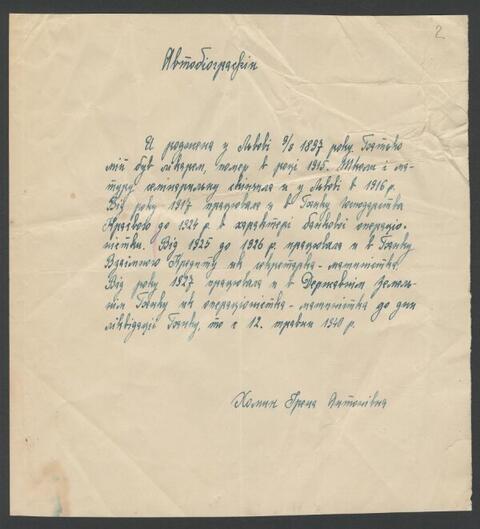 2
Автобіографія
Я роджена у Львові 9/6 1897 року. Батько
мій був лікарем, помер в році 1915. Школи і ма-
туру семінарильну скінчила я у Львові в 1916 р.
Від року 1917 працювала я в Банку господарства
Крайового до 1924 р. в характері банкової операціо-
ністки. Від 1925 до 1926 р. працювала я в Банку
Взаїмного Кредиту як секретарка-машиністка.
Від року 1927 працювала я в Державнім Земель-
нім Банку як операціоністка-машиністка до дня
ліквідації Банку, то є 12. травня 1940 р.
Ірена Антонівна